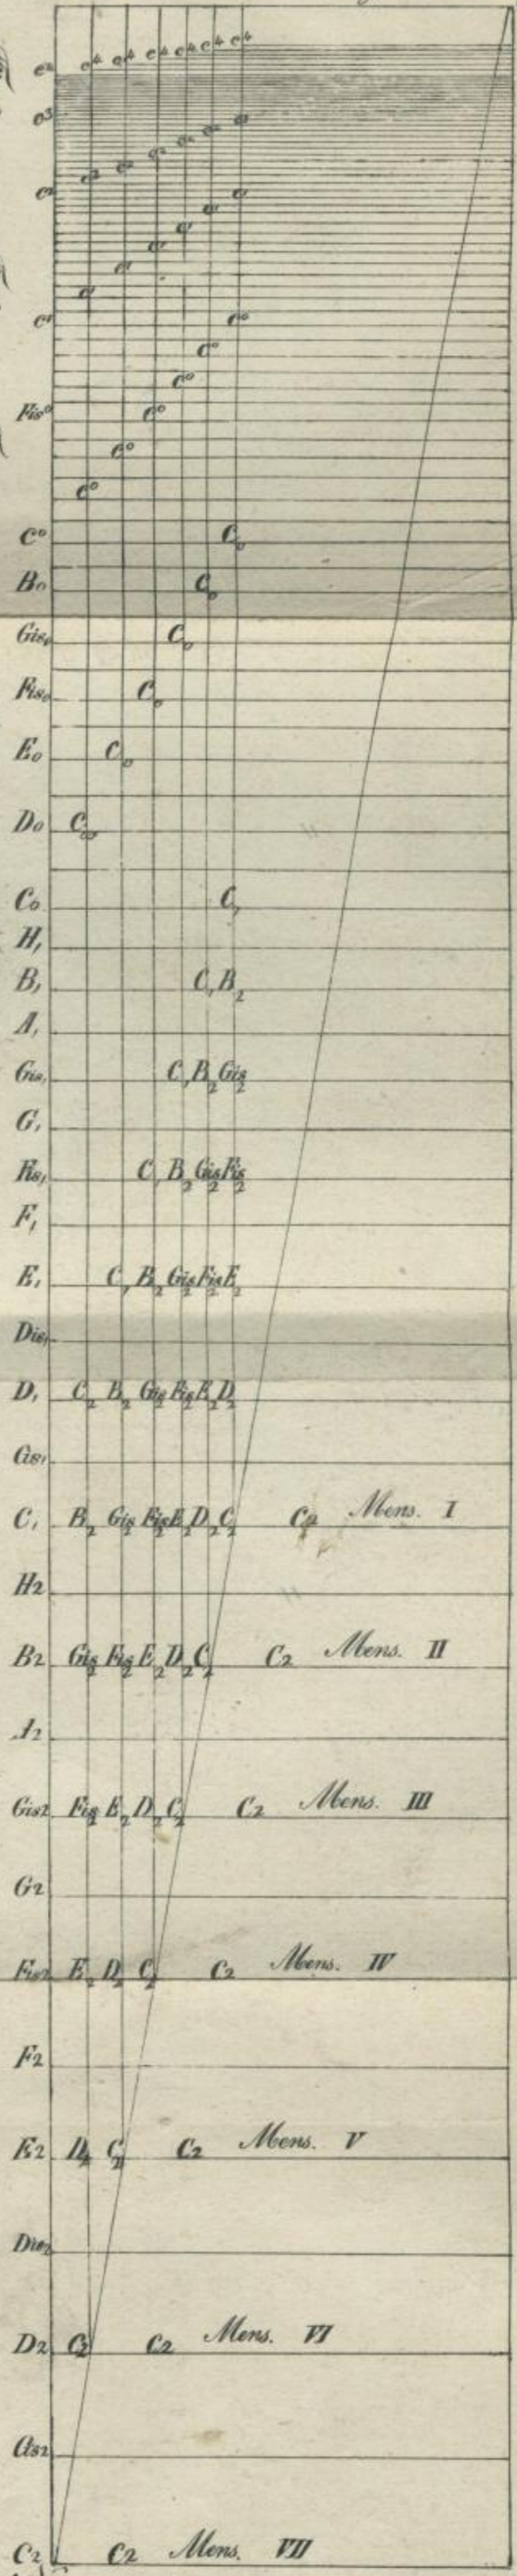 c4 c4 c4 c4 c4 c4
c4
c3
c2 c2 c2 c2 c2 c2
c2
c1 c1 c1 c1 c1 c1
c1
c0
c0
c0
Fis0 c0
c0
c0
C0 C0
B0 C0
Gis0 C0
Fis0 C0
E0 C0
D0 C0
C0 C,
H,
B, C, B2
A,
Gis, C, B2 Gis2
G,
Fis, C, B2 Gis2 Fis2
F,
E, C, B2 Gis2 Fis2 E2
Dis,
D, C2 B2 Gis2 Fis2 E2 D2
Cis,
C, B2 Gis2 Fis2 E2 D2 C2 C2 Mens. I
H2
B2 Gis2 Fis2 E2 D2 C2 C2 Mens. II
A2
Gis2 Fis2 E2 D2 C2 C2 Mens. III
G2
Fis2 E2 D2 C2 C2 Mens. IV
F2
E2 D2 C2 C2 Mens. V
Dis2
D2 C2 C2 Mens. VI
Cis2
C2 C2 Mens. VII